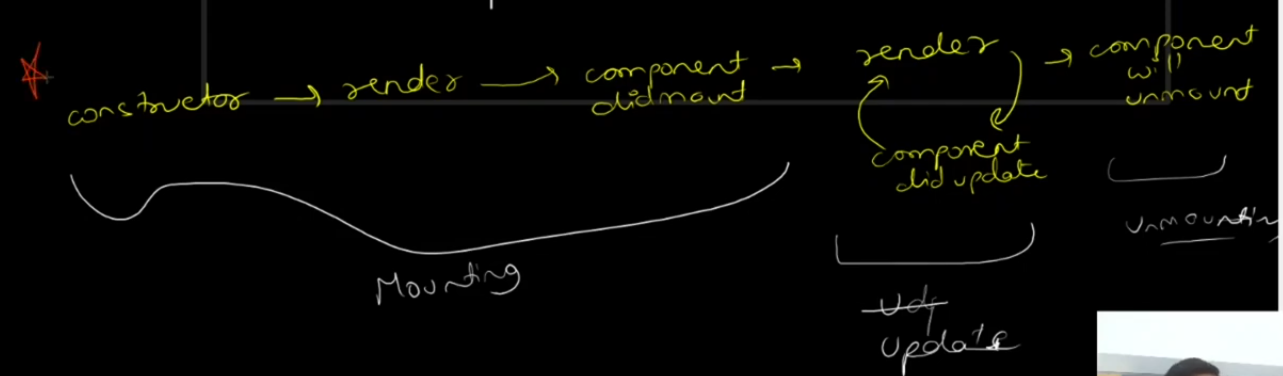 constructor → render → component → render → component
didmount
will
unmount
component
did update
Mounting
Update
Unmountin